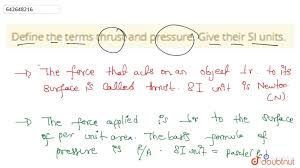 642648216
Define the terms thrust and pressure. Give their SI units.
→ The force that acts on an object ⊥r. to its
surface is called thrust. SI unit is Newton
(N).
→ The force applied is ⊥r to the surface
of per unit area. The basic formula of
pressure is F/A. SI unit = pascal
doubtnut